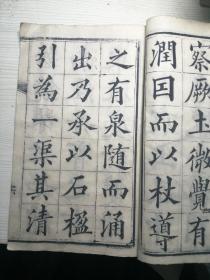 察厥土微覺有
潤囙而以杖導
之有泉隨而涌
出乃承以石檻
引為一渠其清